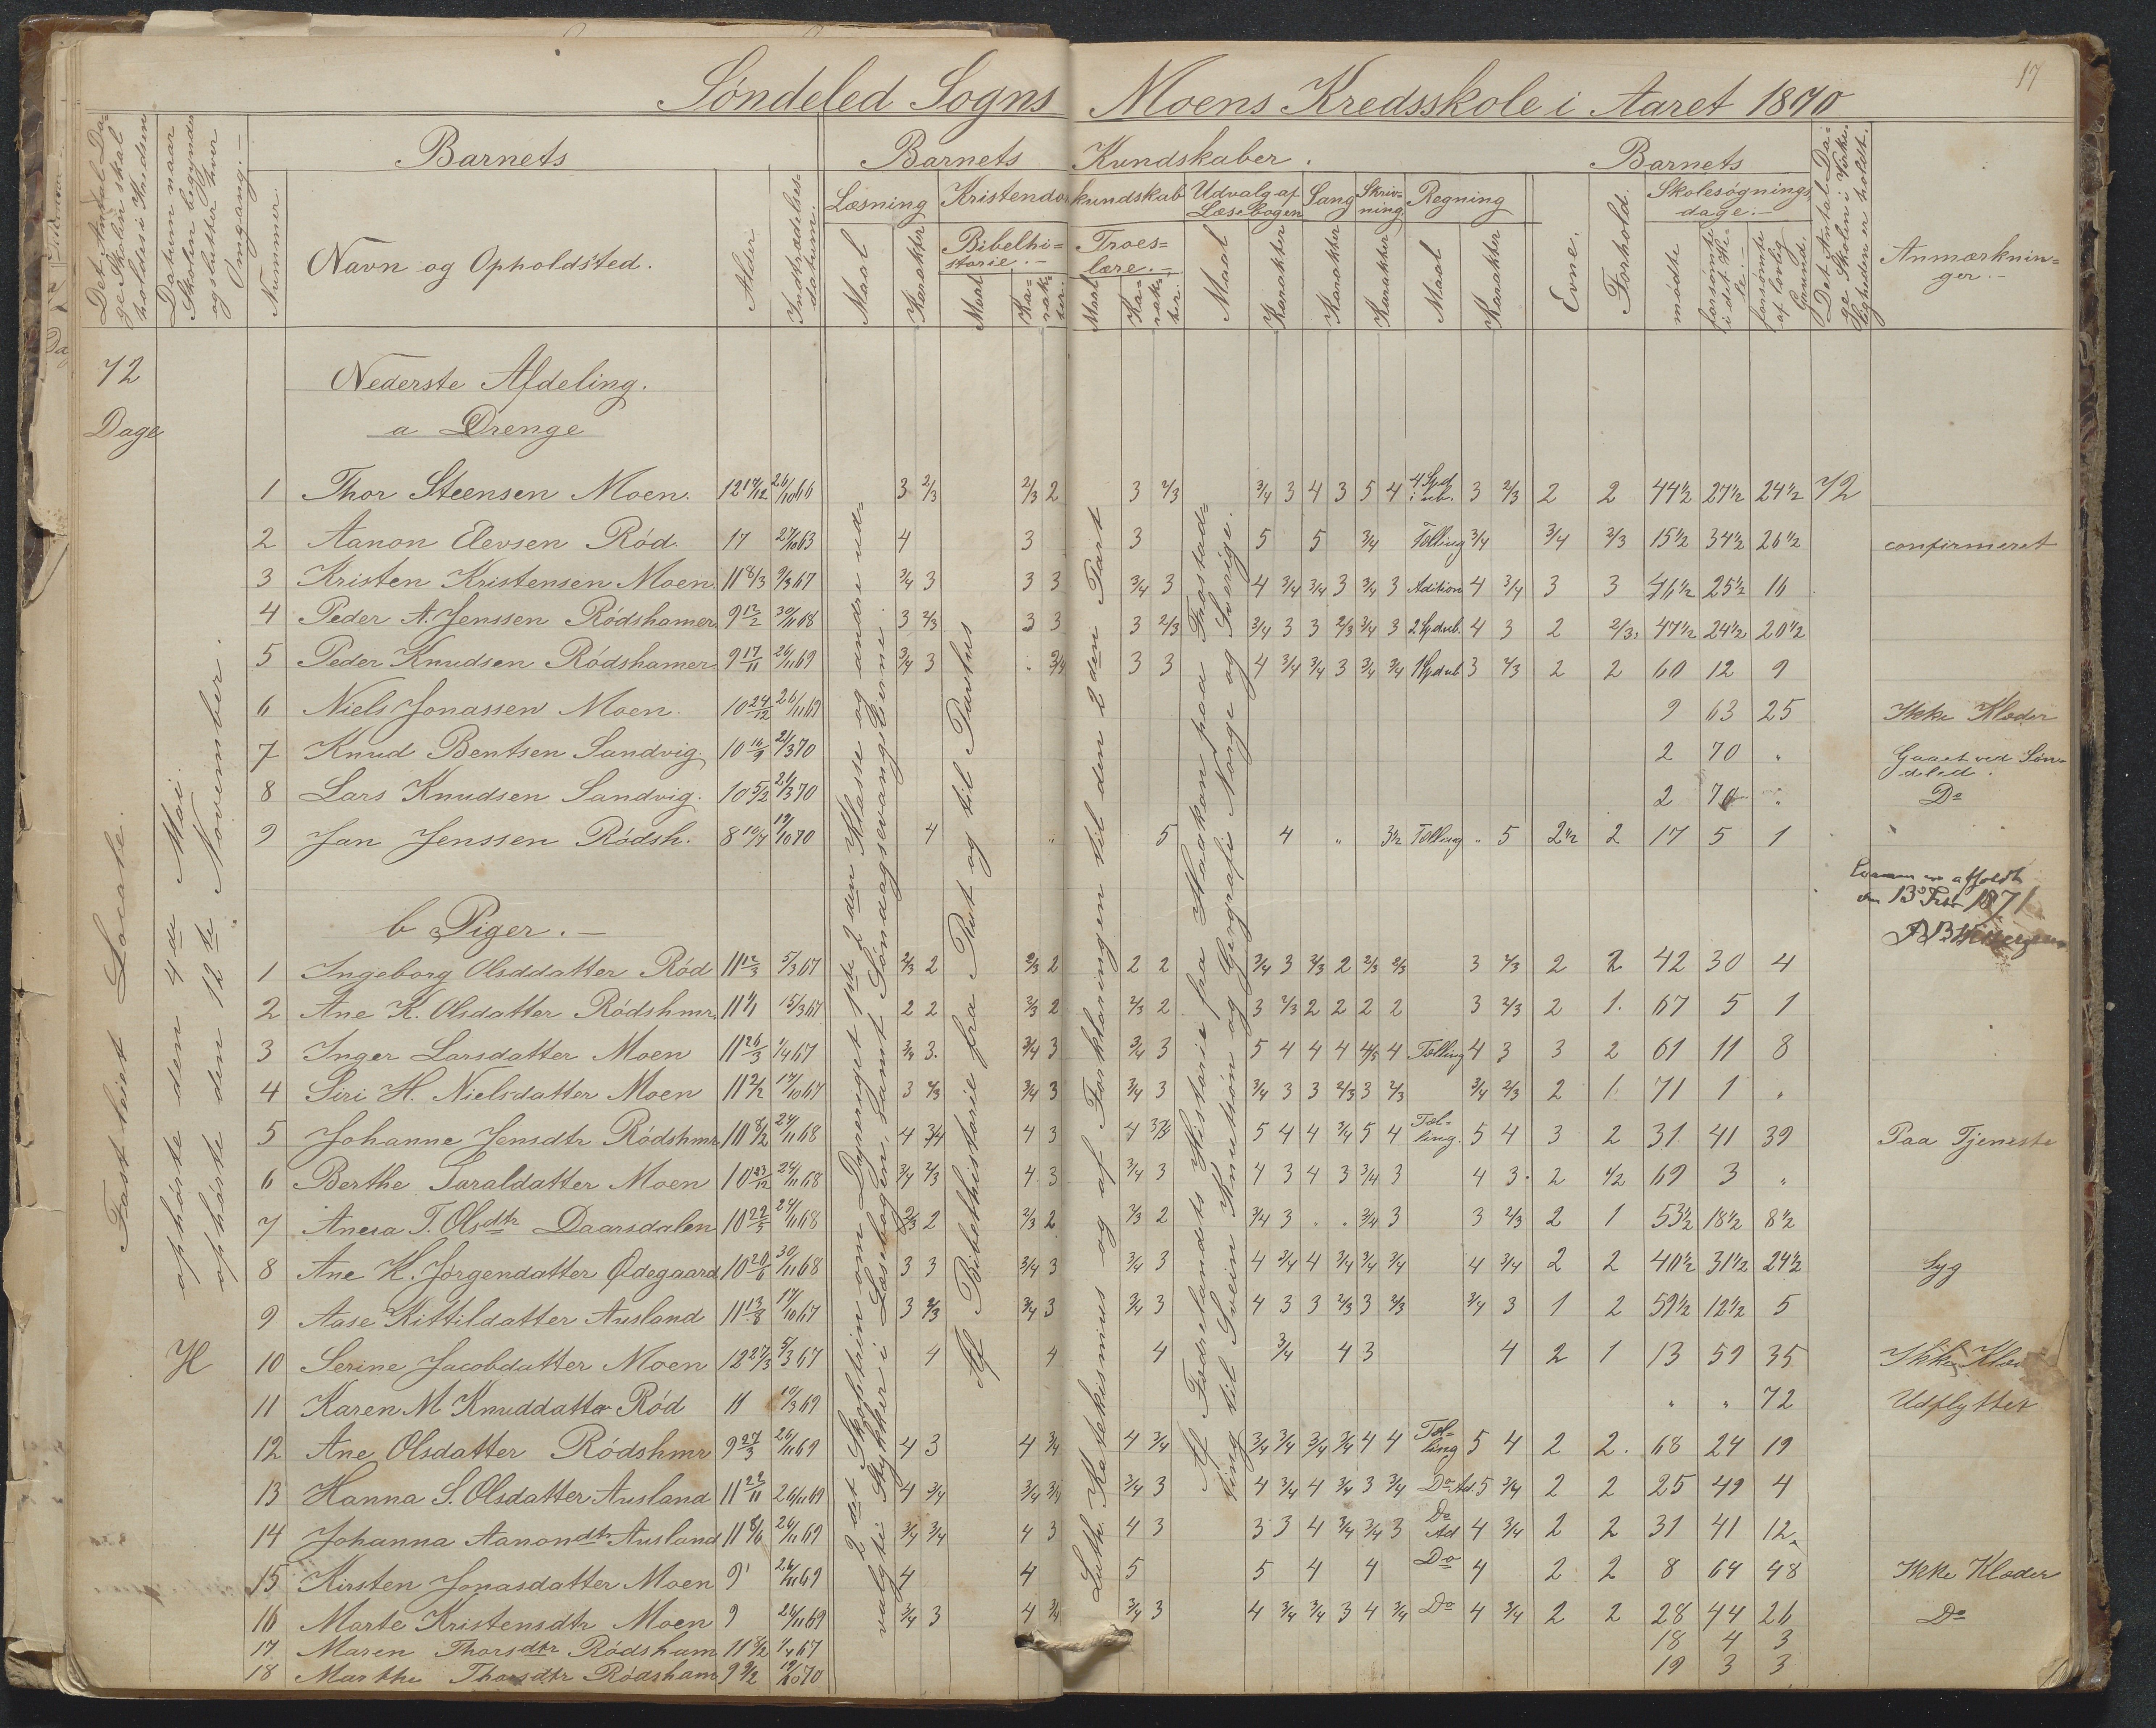 17
Søndeled Sogns Moens Kredsskole i Aaret 1870
Det Antal Dage Skolen skal holdes i Kredsen
Datum naar Skolen begynder og slutter hver Omgang.
Barnets
Nummer
Navn og Opholdsted.
Alder
Indtrædelsesdatum.
Barnets Kundskaber.
Læsning
Maal
Karakter
Kristendomskundskab
Bibelhistorie.
Maal
Karakter.
Troeslære.
Maal
Karakter.
Udvalg af Læsebogen
Maal
Karakter
Sang
Karakter
Skrivning
Karakter
Regning
Maal
Karakter
Barnets
Evne.
Forhold.
Skolesøgningsdage.
mødte
forsømte i det Hele.
forsømte af lovlig Grund.
Det Antal Dage Skolen i Virkeligheden er holdt.
Anmærkninger.
72
Dage
Fast leiet Locale.
ophørte den 4de Mai.
ophørte den 12te November.
H
Nederste Afdeling.
a Drenge
1 Thor Steensen Moen. 12 19/12 26/10 66 3 2/3 2/3 2 3 2/3 3/4 3 4 3 5 4 3 2/3 2 2 44½ 27½ 24½ 72
2 Aanon Elevsen Rød. 17 27/10 63 4 3 3 5 5 3/4 Tælling 3/4 3/4 2/3 15½ 34½ 26½ confirmeret
3 Kristen Kristensen Moen. 11 8/3 9/3 67 3/4 3 3 3 3/4 3 4 3/4 3/4 3 3/4 3 Adition 4 3/4 3 3 46½ 25½ 16
4 Peder A. Jenssen Rødshamer 9 12/2 30/11 68 3 2/3 3 3 3 2/3 3/4 3 3 2/3 3/4 3 4 3 2 2/3 47½ 24½ 20½
5 Peder Knudsen Rødshamer 9 17/11 26/11 69 3/4 3 3/4 3 3 4 3/4 3/4 3 3/4 3/4 3 2/3 2 2 60 12 9
6 Niels Jonassen Moen. 10 24/12 26/11 69 9 63 25 Ikke Klæder
7 Knud Bentsen Sandvig. 10 16/9 21/3 70 2 70 " Gaaet ved Søndeled.
8 Lars Knudsen Sandvig. 10 5/2 21/3 70 2 70 " Do
9 Jan Jenssen Rødsh. 8 10/7 19/10 70 4 " 5 4 " 3½ Tælling " 5 2½ 2 17 5 1
Examen afholdt
den 13 Febr 1871
b Piger.
1 Ingeborg Olsddatter Rød 11 12/3 5/3 67 2/3 2 2/3 2 2 2 3/4 3 2/3 2 2/3 2/3 3 2/3 2 2 42 30 4
2 Ane K. Olsdatter Rødshmr. 11 15/3 67 2 2 2/3 2 2/3 2 3 2/3 2 2 2 2 3 2/3 2 1. 67 5 1
3 Inger Larsdatter Moen 11 26/3 1/4 67 3/4 3. 3/4 3 3/4 3 5 4 4 4 4/5 4 Tælling 4 3 3 2 61 11 8
4 Siri H. Nielsdatter Moen 11 2/2 17/10 67 3 2/3 3/4 3 3/4 3 3/4 3 3 2/3 3 2/3 3/4 2/3 2 1 71 1 "
5 Johanne Jensdtr Rødshmr. 10 8/2 24/11 68 4 3/4 4 3 4 3/4 5 4 4 3/4 5 4 Tælling. 5 4 3 2 31 41 39 Paa Tjeneste
6 Berthe Taraldatter Moen 10 23/12 24/11 68 3/4 2/3 4 3 3/4 3 4 3 4 3 3/4 3 4 3 2 1/2 69 3 "
7 T. Olsdtr Daarsdalen 10 22/5 24/11 68 2/3 2 2/3 2 2/3 2 3/4 3 " " 3/4 3 3 2/3 2 1 53½ 18½ 8½
8 Ane K. Jørgendatter Ødegaard 10 20/6 30/11 68 3 3 3/4 3 3/4 3 4 3/4 4 3/4 3/4 3/4 4 3/4 2 2 40½ 31½ 24½ Syg
9 Aase Kittildatter Ausland 11 13/8 17/10 67 3 2/3 3/4 3 3/4 3 4 3 3 2/3 3 2/3 3/4 3 1 2 59½ 12½ 5
10 Serine Jacobdatter Moen 12 27/3 5/3 67 4 4 4 3/4 4 3 4 2 1 13 59 35 Ikke
11 Karen M Knuddatter Rød 11 10/3 69 " " 72 Udflyttet
12 Ane Olsdatter Rødshmr 9 27/3 26/11 69 4 3 4 3/4 4 3/4 3/4 3/4 3/4 3/4 4 4 Tælling 5 4 2 2. 68 24 19
13 Hanna S. Olsdatter Ausland 11 22/11 26/11 69 4 3/4 3/4 3/4 3/4 3 4 3/4 4 3/4 3 3/4 Do Ad 5 3/4 2 2 25 49 4
14 Johanna Aanondtr Ausland 11 8/6 26/11 69 3/4 3/4 4 3 4 3 3 3 4 3/4 3/4 3 Do Ad 4 3/4 2 2 31 41 12
15 Kirsten Jonasdatter Moen 9 26/11 69 4 4 5 5 4 4 Do 4 2 2 8 64 48 Ikke Klæder
16 Marte Kristensdtr Moen 9 26/11 69 3/4 3 4 3/4 3/4 3 4 3/4 3/4 3 4 3/4 Do 4 3/4 2 2 28 44 26 Do
17 Maren Thorsdtr Rødsham 11 8/2 1/4 67 18 4 3
18 Marthe Thorsdtr Rødsham 9 9/2 19/10 70 19 3 3
2det Skoletrin om Dyreriget 1ste 2den Klasse og andre udvalgte Stykker i Læsebogen, samt Søndagsevangelierne
Af Bibelhistorie fra Rut og til Paulus
Luth. Katekismus og af Forklaringen til den 2den Part
Af Fædrelandets Historie fra Haakon paa Sverige.
til Svein Knutsøn og Geografi Norge og